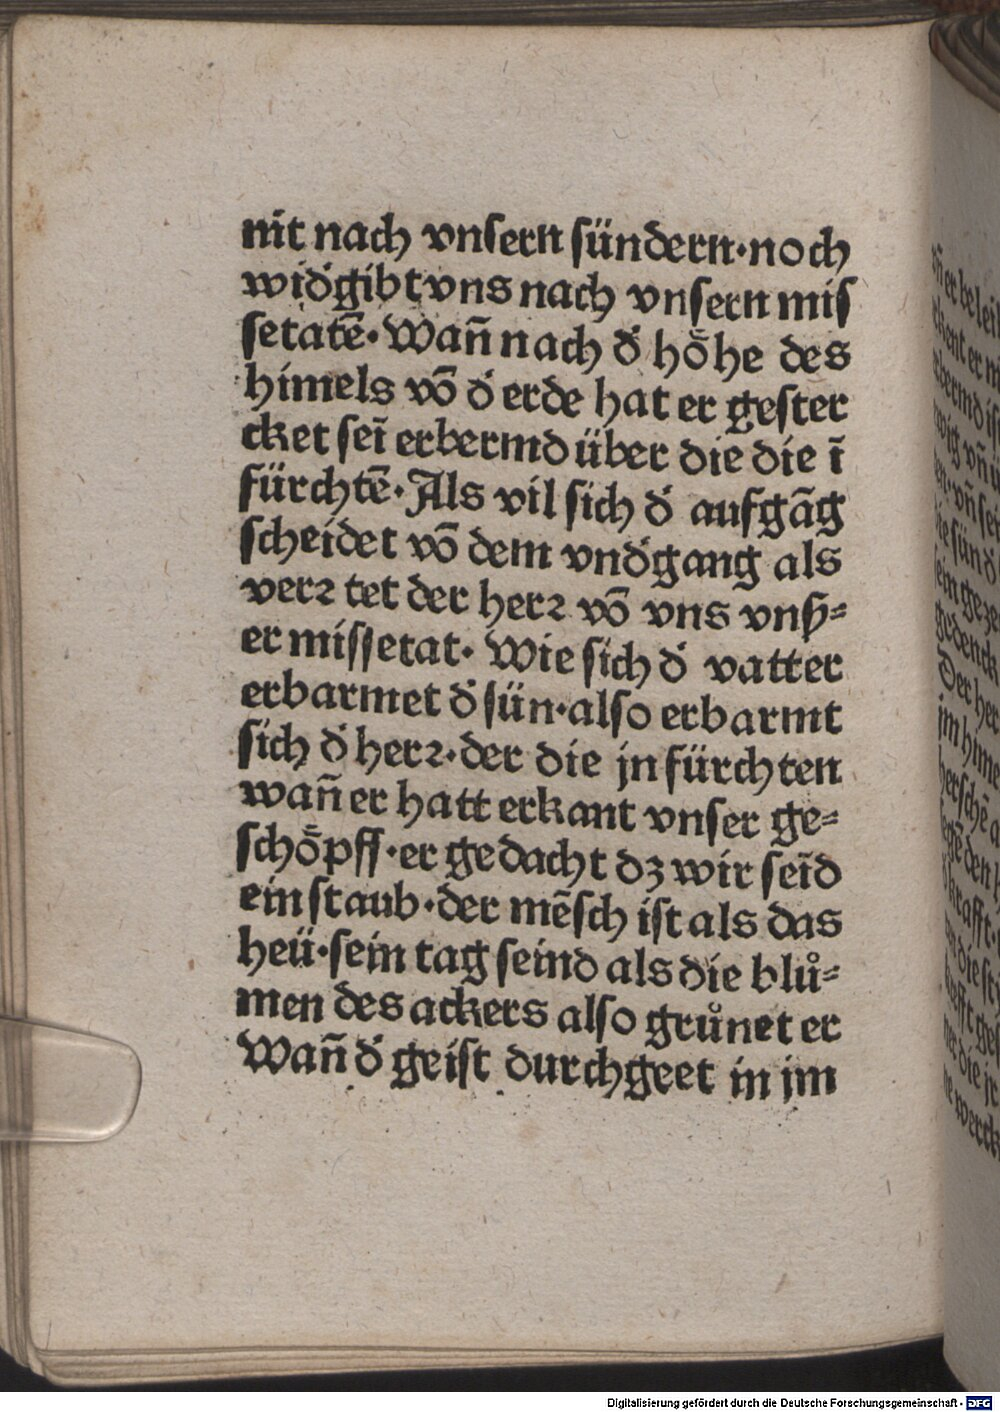 nit nach vnsern sündern·noch
wid᷑gibt vns nach vnsern mis
setatē· Wan̄ nach d᷑ hoͤhe des
himels vō d᷑ erde hat er gester
cket seī erbermd über die die ī
fürchtē· Als vil sich d᷑ aufgāg
scheidet vō dem vnd᷑gang als
verꝛ tet der herꝛ vō vns vnß⸗
er missetat· Wie sich d᷑ vatter
erbarmet d᷑ sün·also erbarmt
sich d᷑ herꝛ·der die jn fürchten
wan̄ er hatt erkant vnser ge⸗
schoͤpff·er gedacht dz wir seīd
ein staub·der mēsch ist als das
heü·sein tag seind als die bluͦ⸗
men des ackers also gruͦnet er
Wan̄ d᷑ geist durchgeet in jm
er be lei
kent er m
wig vn̄ ü
sein ge ze
Der her
jm hime
herschē a
krafft·
ner die jr
werck
Digitalisierung gefördert durch die Deutsche Forschungsgemeinschaft - DFG